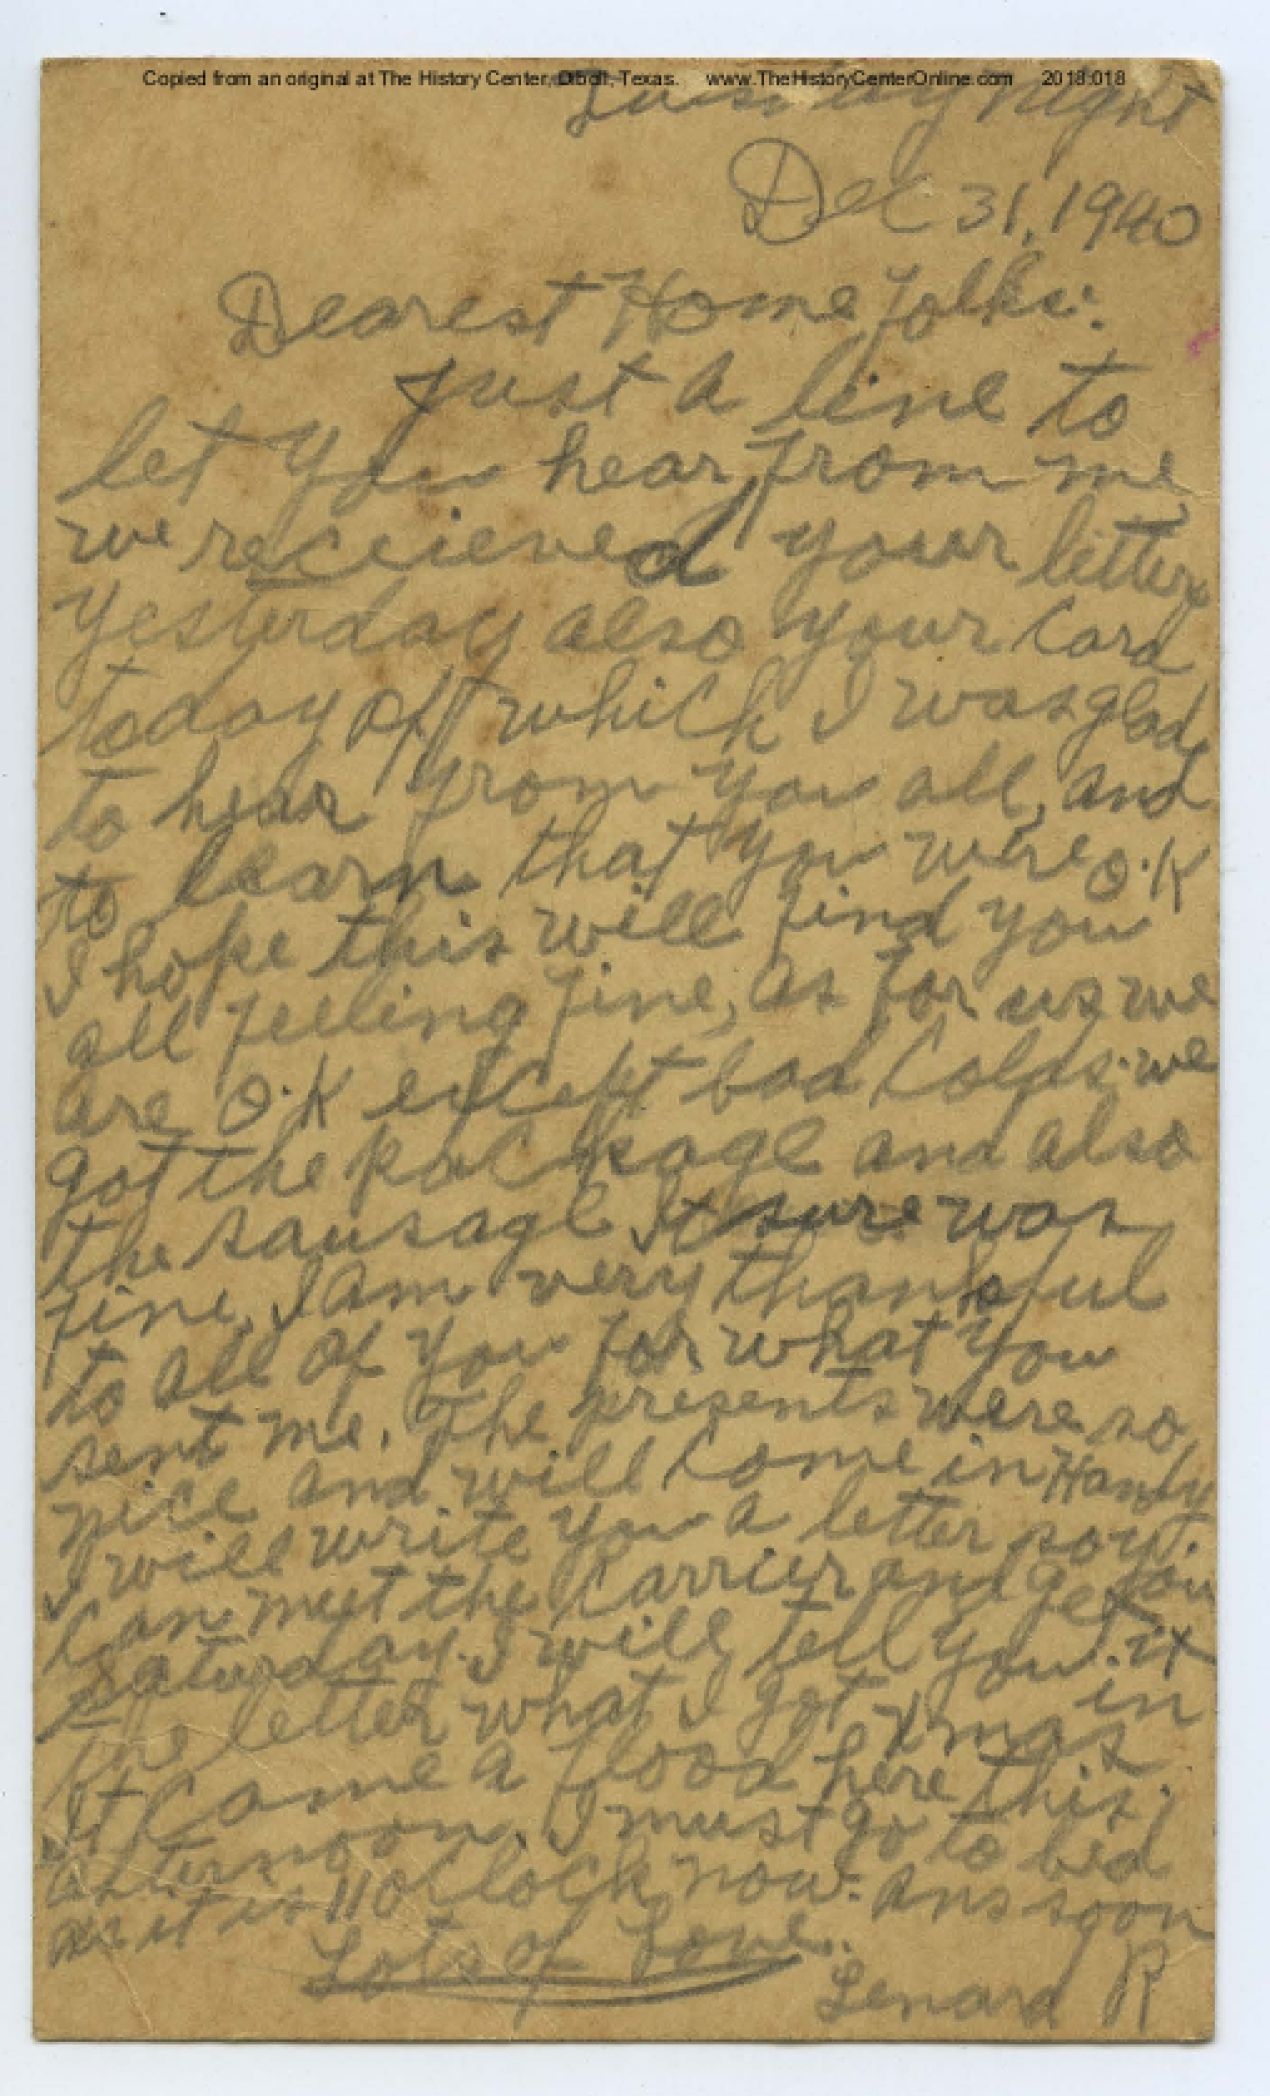 Copied from an original at The History Center, Diboll, Texas. www.TheHistoryCenterOnline.com 2018:018
Tuesday night
Dec 31, 1940
Dearest Home folks:
Just a line to
let you hear from me
we recieved your letter
yesterday also your card
today off which I was glad
to hear from you all, and
to learn that you were O.K
I hope this will find you
all feeling fine, as for us we
are O.K except bad colds. we
got the package and also
the sausage It sure was
fine. I am very thankful
to all of you for what you
sent me. The presents were so
nice and will come in Handy
I will write you a letter so you
can meet the carrier and get it
Saturday. I will tell you in
the letter what I got Xmas.
It came a flood here this
afternoon. I must go to bed
as it is 11 o'clock now. ans soon
Lots of Love.
Lenard R